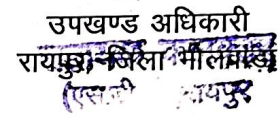 उपखण्ड अधिकारी
रायपुर जिला भीलवाड़ा